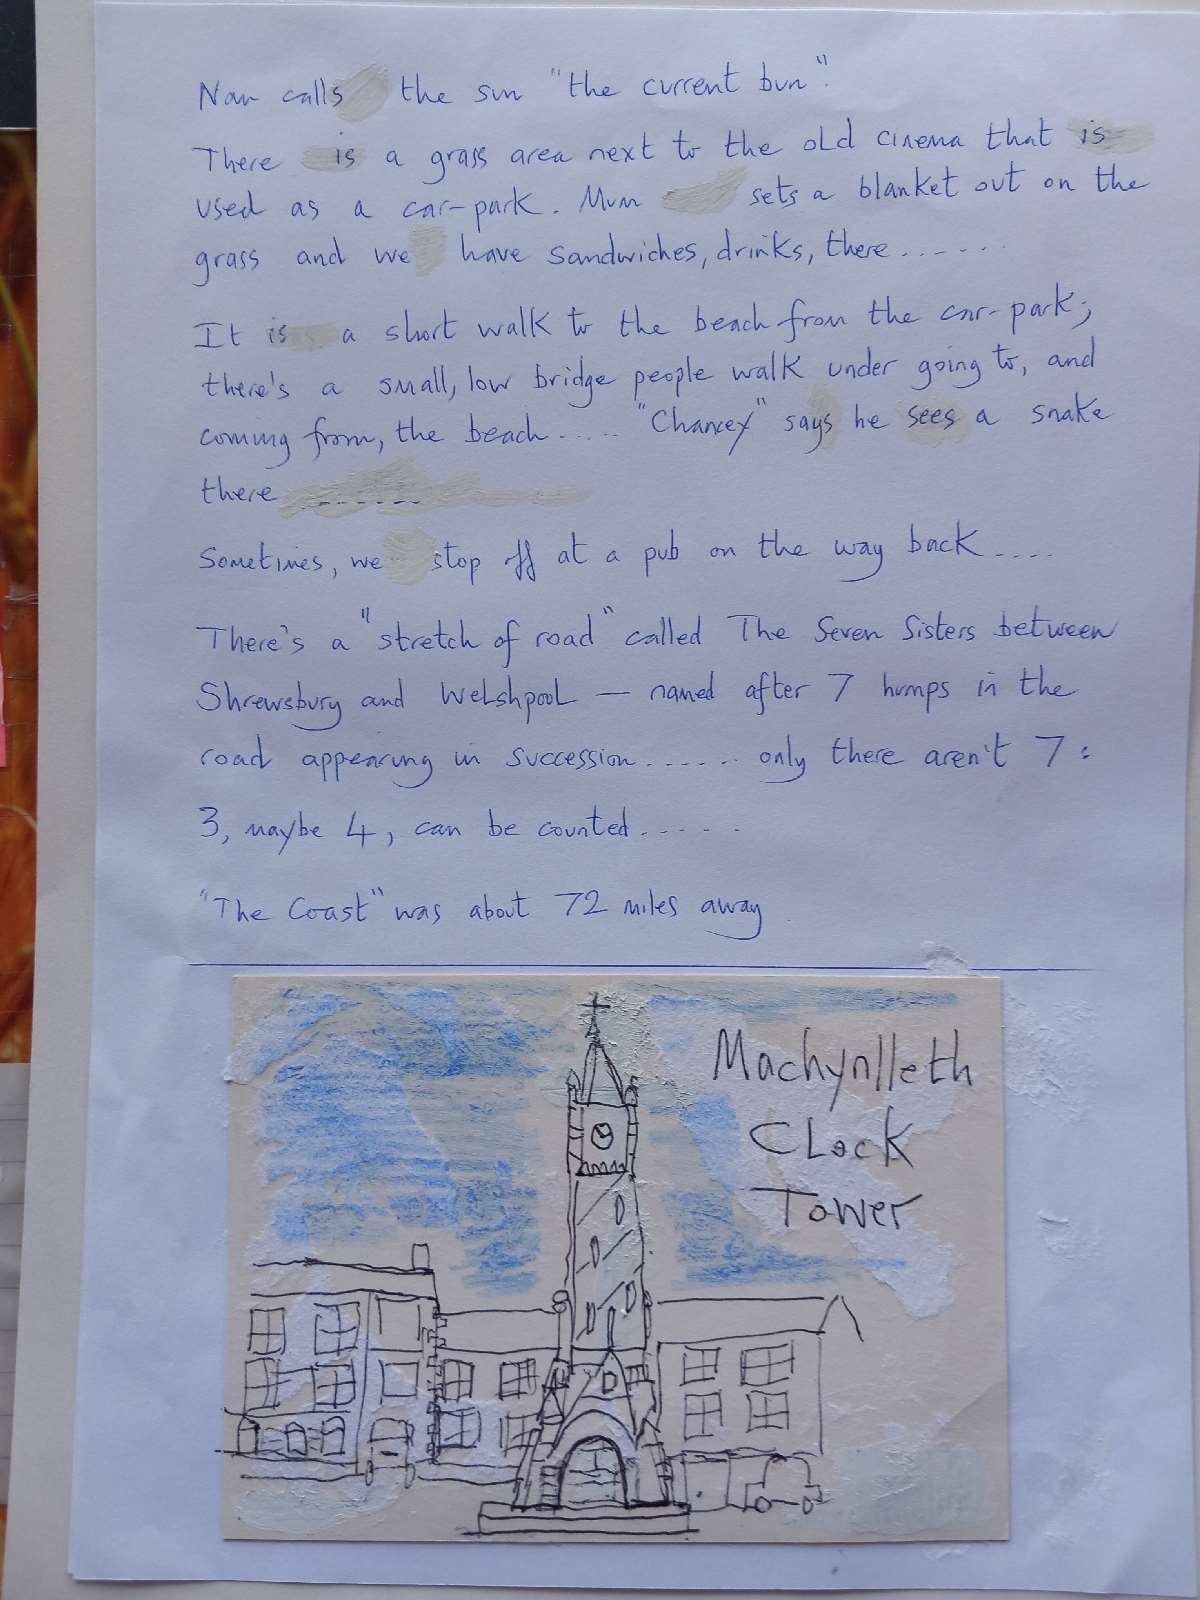 Nan calls the sun "the current bun".
There is a grass area next to the old cinema that is
used as a car-park. Mum sets a blanket out on the
grass and we have sandwiches, drinks, there.....
It is a short walk to the beach from the car-park;
there's a small, low bridge people walk under going to, and
coming from, the beach..... "Chancey" says he sees a snake
there .......
Sometimes, we stop off at a pub on the way back....
There's a "stretch of road" called The Seven Sisters between
Shrewsbury and Welshpool — named after 7 humps in the
road appearing in succession...... only there aren't 7:
3, maybe 4, can be counted.....
"The Coast" was about 72 miles away.
Machynlleth
Clock
Tower